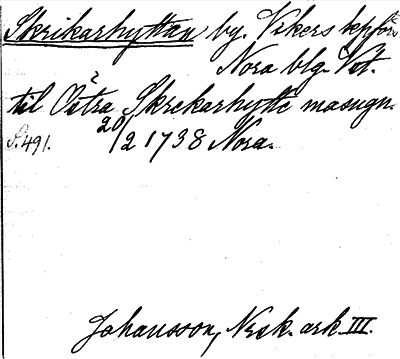 Skrikarhyttan by. Vikers kpförs
Nora blg. Vst.
til Östra Skrekarhytte masugn.
S. 491. 20/2 1738 Nora.
Johansson, Nosk. ark. III.